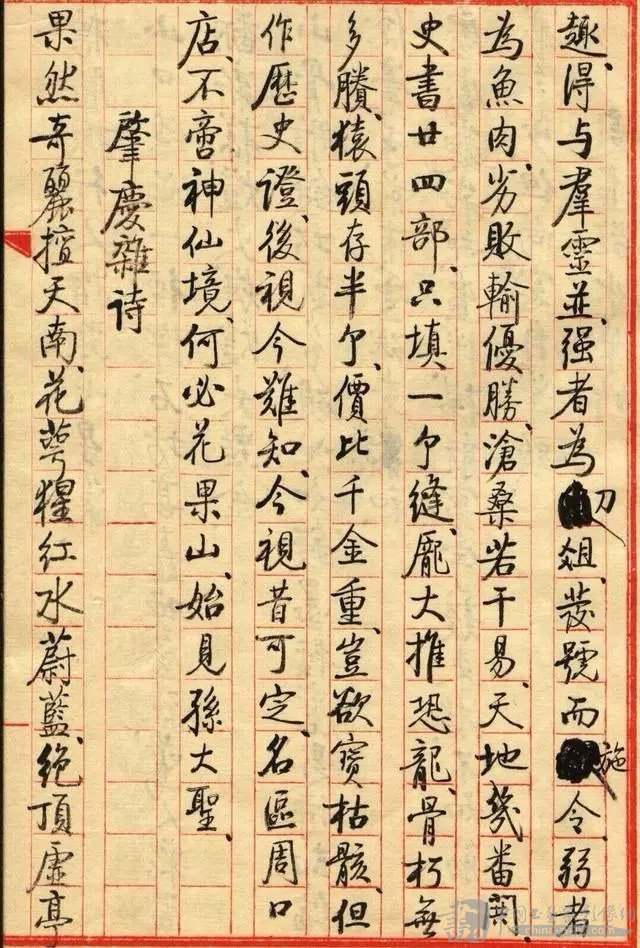 趣、得与羣靈並、强者為刀俎、發號而施令、弱者
為魚肉、劣敗輸優勝、滄桑若干易、天地幾番閞、
史書廿四部、只填一个縫、龐大推恐龍、骨朽無
多賸、猿頭存半个、價比千金重、豈欲寶枯骸、但
作歷史證、後視今難知、今視昔可定、名區周口
店、不啻神仙境、何必花果山、始見孫大聖、
肇慶雜诗
果然奇麗擅天南、花萼猩红水蔚藍、绝頂虛亭